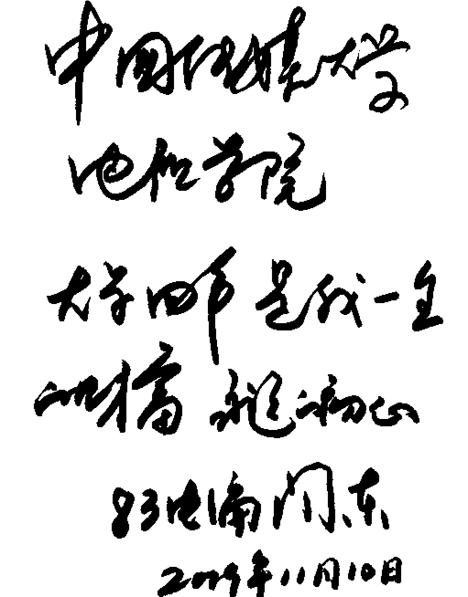 中国传媒大学
电视学院
大学四年是我一生
的财富 初心
83电编闫东
2019年11月10日